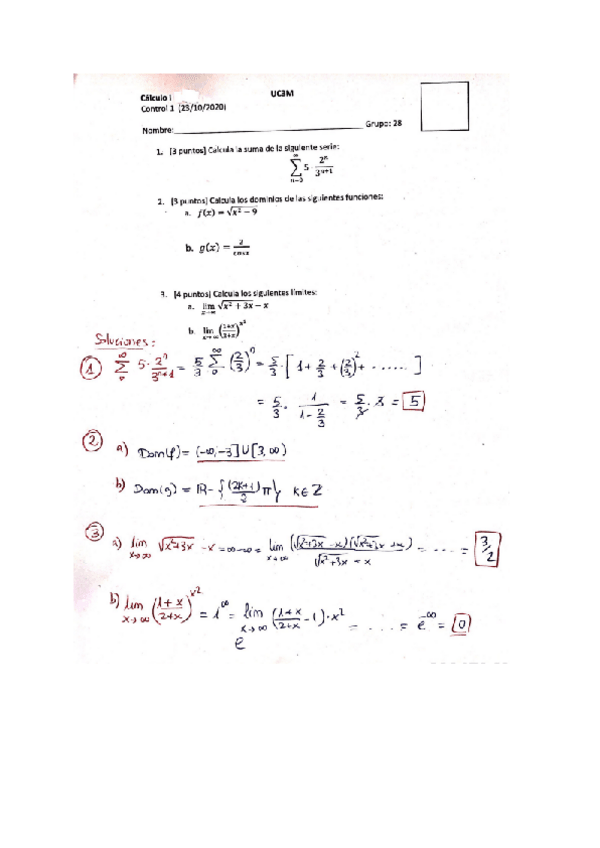 UC3M
Cálculo I
Control 1 (23/10/2020)
Nombre:____________ Grupo: 28
1. [3 puntos] Calcula la suma de la siguiente serie:
∑_{n=0}^{∞} 5 · 2^n / 3^{n+1}
2. [3 puntos] Calcula los dominios de las siguientes funciones:
a. f(x) = √(x² − 9)
b. g(x) =
3. [4 puntos] Calcula los siguientes límites:
a. lim √(x² + 3x) − x
b. lim ((1+x)/(2+x))^{x²}
Soluciones:
① ∑_{0}^{∞} 5 · 2^n/3^{n+1} = 5/3 ∑_{0}^{∞} (2/3)^n = 5/3 · [1 + 2/3 + (2/3)² + ......]
= 5/3 · 1/(1 − 2/3) = 5/3 · 3 = 5
② a) Dom(f) = (−∞, −3] ∪ [3, ∞)
b) Dom(g) = ℝ − {(2k+1)/2 π} k ∈ Z
③ a) lim_{x→∞} √(x²+3x) − x = ∞−∞ = lim_{x→∞} (√(x²+3x) − x)(√(x²+3x) + x) / √(x²+3x) + x = .... = 3/2
b) lim_{x→∞} ((1+x)/(2+x))^{x²} = 1^∞ = e^{lim_{x→∞} ((1+x)/(2+x) − 1) · x²} = ..... = e^{−∞} = 0